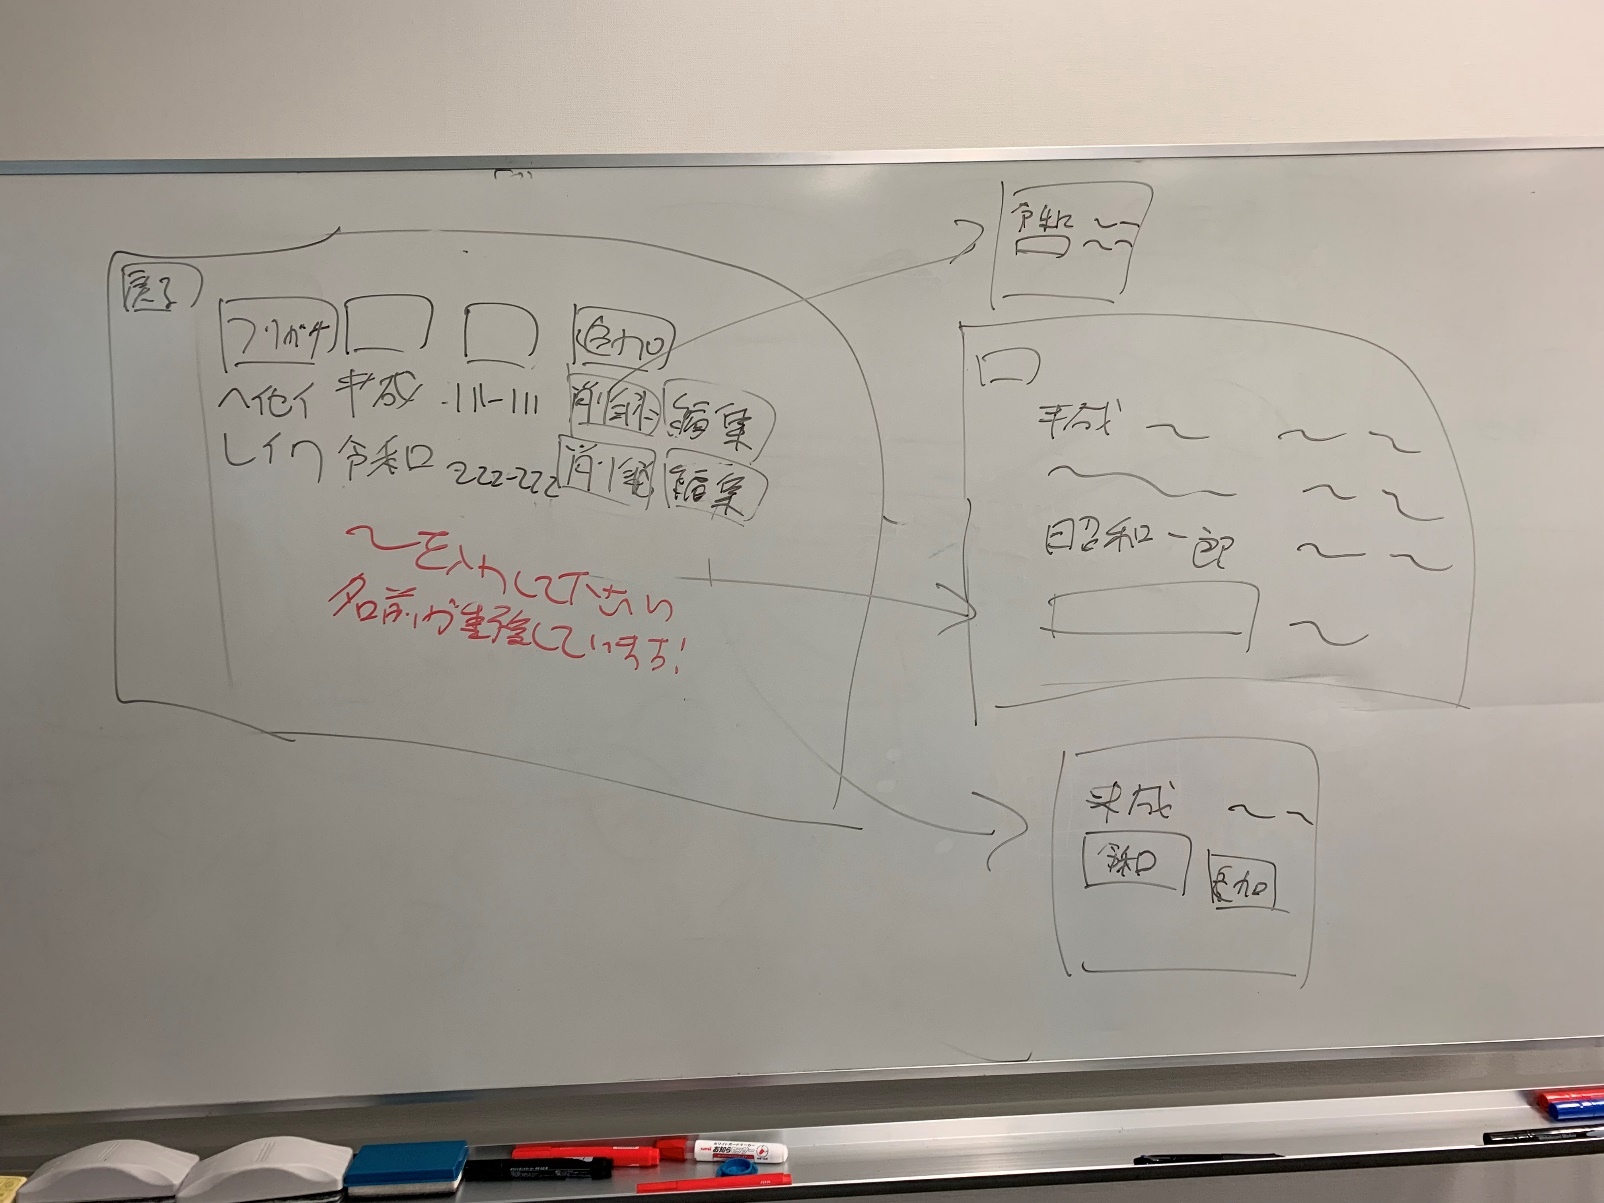 戻る
フリガナ 追加
ヘイセイ 平成 111-111 削除 編集
レイワ 令和 222-222 削除 編集
〜を入力して下さい
名前が重複しています!
令和 〜〜
〜〜
平成 〜 〜〜
〜 〜〜
昭和一郎 〜〜
〜
平成 〜〜
令和 追加
お知らせ